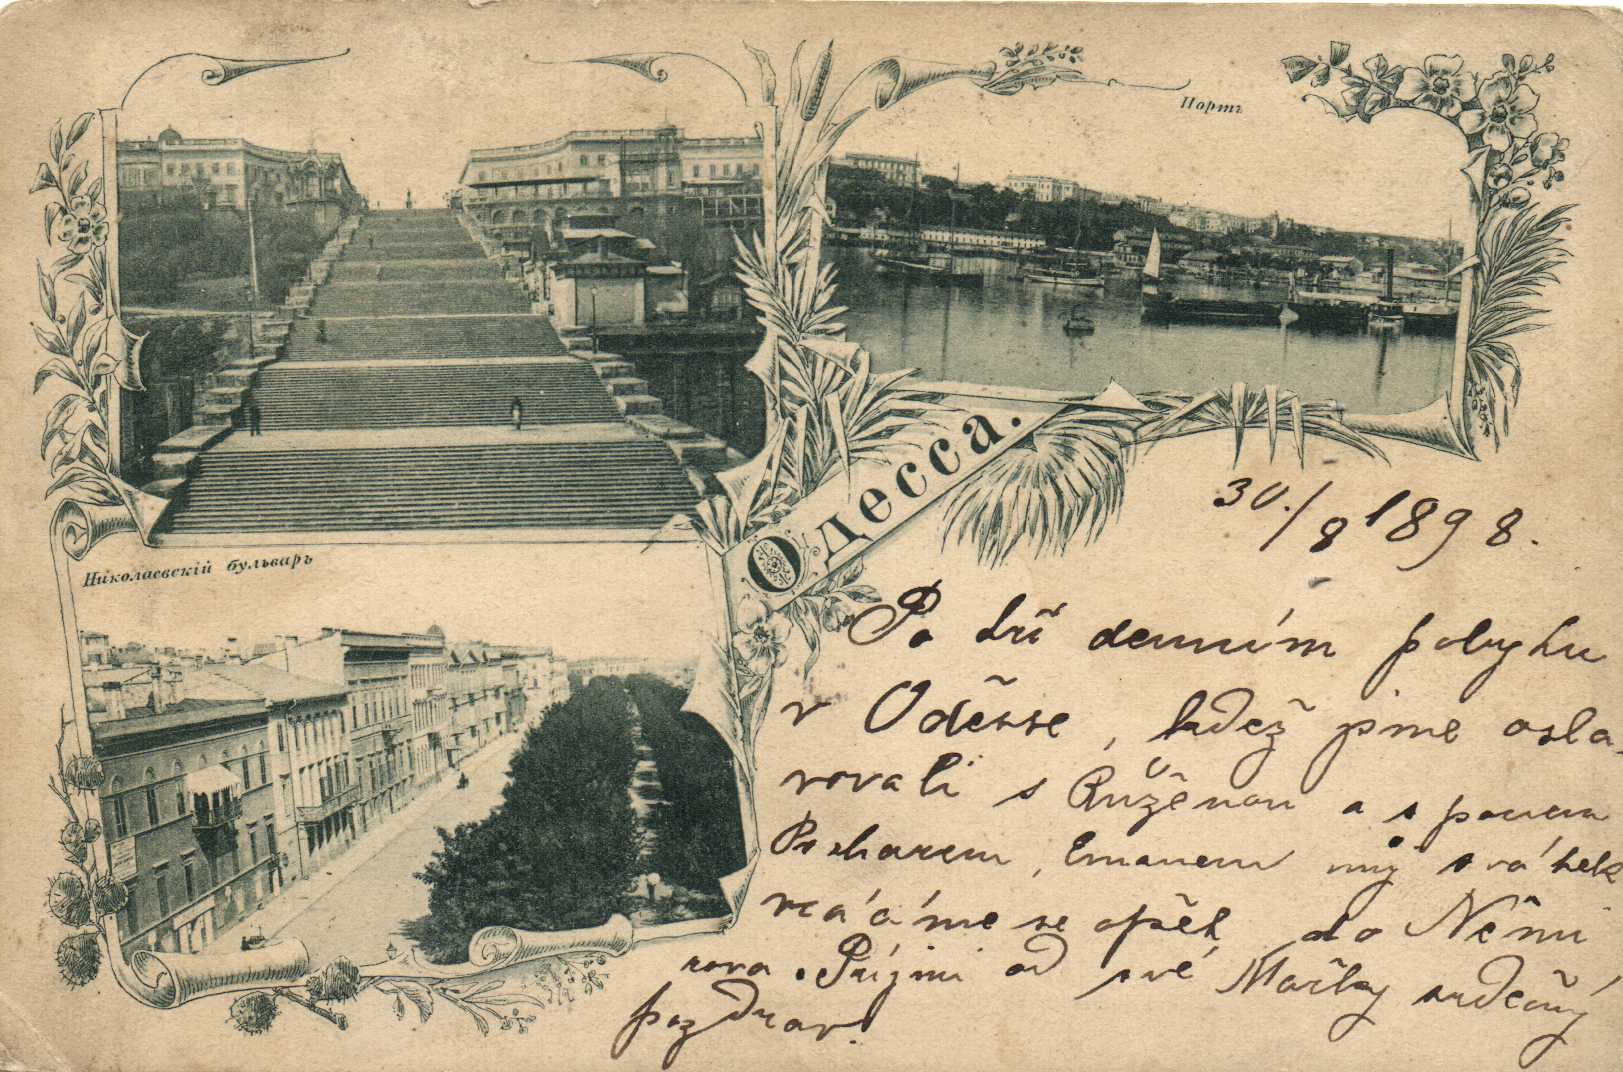 Портъ
Николаевскій бульваръ
Одесса.
30./8 1898.
Po tří denním pobytu
v Oděsse, kdež jsme osla
vovali s Růženou a s panem
Emanem můj svátek
vracíme se opět do Němi
rova. Přijmi od své Mařky srdečný
pozdrav.